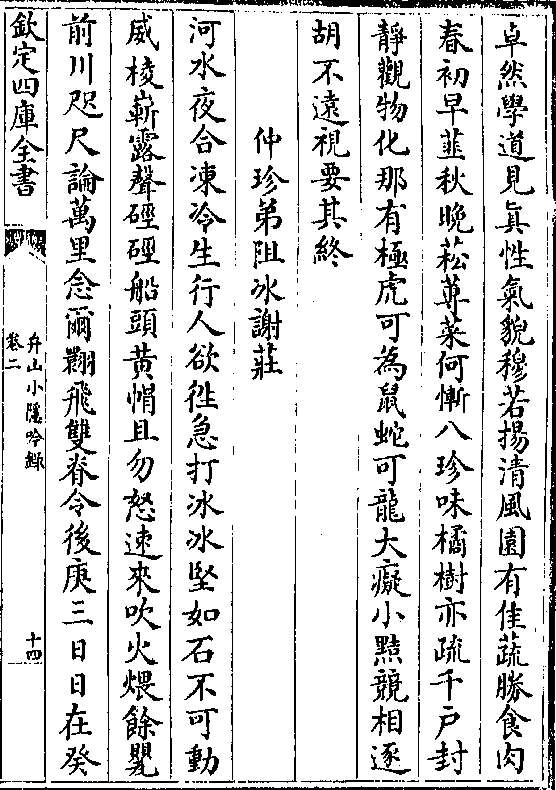 卓然學道見真性氣貌穆若揚清風園有佳蔬勝食肉
春初早韮秋晚菘蓴菜何慚八珍味橘樹亦疏千戸封
靜觀物化那有極虎可為鼠蛇可龍大癡小黠競相逐
胡不遠視要其終
仲珍弟阻冰謝莊
河水夜合凍冷生行人欲徃急打冰冰堅如石不可動
威棱嶄露聲硜硜船頭黄帽且勿怒速來吹火煨餘甖
前川咫尺論萬里念爾翾飛雙脊令後庚三日日在癸
欽定四庫全書
弁山小隱吟錄
卷二
十四